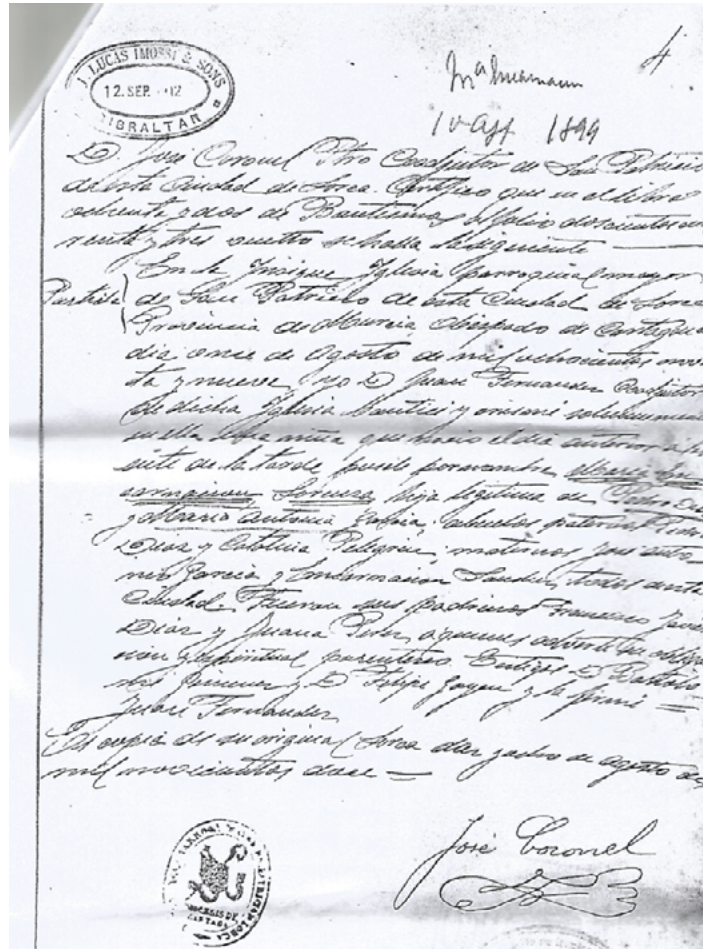 J. LUCAS IMOSSI & SONS
12. SEP. 12
GIBRALTAR
4
10 Ag 1899
D. José Coronel Pbro Coadjutor de San Patricio
de esta Ciudad de Lorca. Certifico que en el libro
ochenta y dos de Bautismos al folio doscientos
y tres vuelto se halla la siguiente
Partida
En la Insigne Iglesia parroquial mayor
de San Patricio de esta Ciudad de Lorca
Provincia de Murcia, Obispado de Cartagena
dia once de Agosto de mil ochocientos nov
ta y nueve, yo D. Juan Fernandez Coadjutor
de dicha Iglesia bauticé y crismé solemnemente
en ella una niña que nació el dia anterior a las
siete de la tarde púsele por nombre Maria
Encarnacion Lorenza hija legitima de Pedro Diaz
y Maria Antonia Garcia; abuelos paternos Pedro
Diaz y Catalina Pelegrin; maternos Juan Anto
nio Garcia y Encarnacion Sanchez, todos de esta
Ciudad. Fueron sus padrinos Francisco Javier
Diaz y Juana Perez, a quienes advertí su obliga
cion y espiritual parentesco. Testigos D. Patricio
y D. Felipe y lo firmé =
Juan Fernandez
Es copia de su original Lorca diez y ocho de Agosto de
mil novecientos doce =
José Coronel
LORCA